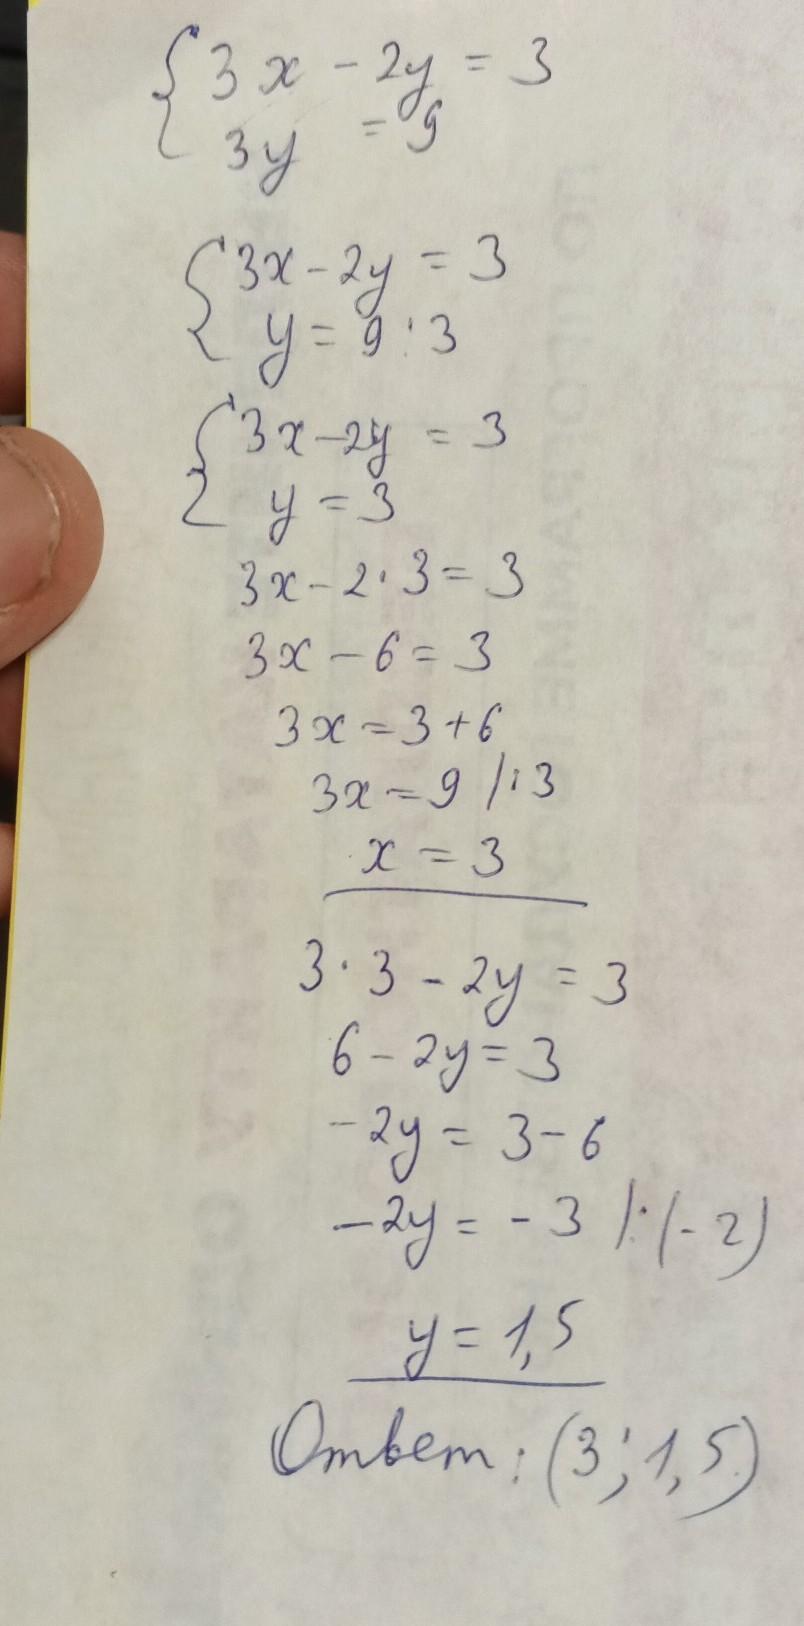 { 3x - 2y = 3
3y = 9
{ 3x - 2y = 3
y = 9 : 3
{ 3x - 2y = 3
y = 3
3x - 2 · 3 = 3
3x - 6 = 3
3x = 3 + 6
3x = 9 /:3
x = 3
3 · 3 - 2y = 3
6 - 2y = 3
-2y = 3 - 6
-2y = -3 /:(-2)
y = 1,5
Ответ: (3; 1,5)